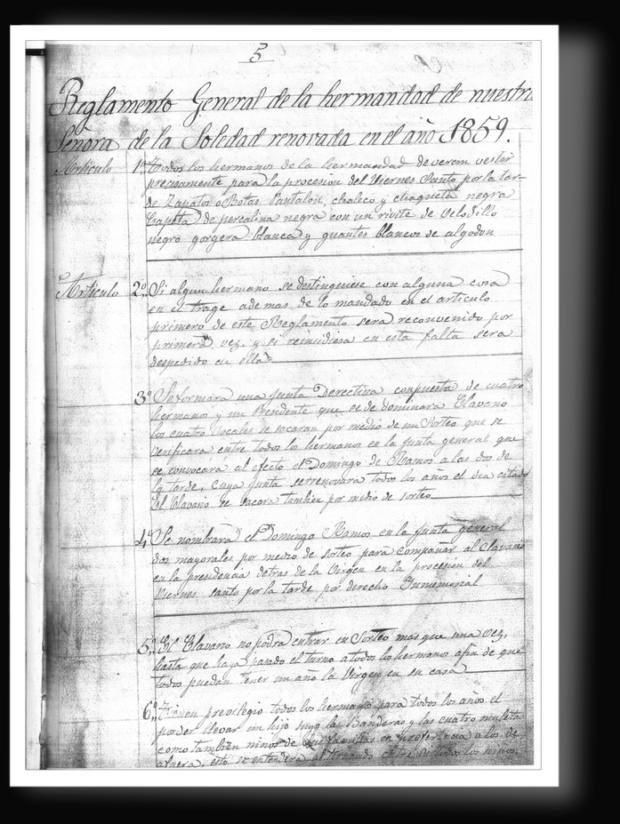 5
Reglamento General de la hermandad de nuestra
Señora de la Soledad renovada en el año 1859.
Artículo 1º Todos los hermanos de la hermandad deveran vestir
precisamente para la procesion del Viernes Santo por la tar-
de Zapatos o Botas Pantalon, chaleco y chaqueta negra
Capota de percalina negra con un rivite de velsdillo
negro gorgera blanca y guantes blancos de algodon
Artículo 2º Si algun hermano se destinguiese con alguna cosa
en el trage ademas de lo mandado en el artículo
primero de este Reglamento sera reconvenido por
primera vez, y si reincidiera en esta falta sera
despedido en ella
3º Se formará una Junta Derectiva conpuesta de cuatro
hermanos y un Presidente que se de dominara Clavario
los cuatro vocales se sacaran por medio de un Sorteo que se
verificara entre todos los hermanos en la junta general que
se convocara al efecto el Domingo de Ramos a las dos de
la tarde, cuya junta serrenovara todos los años el dia citado
El Clavario se sacara tambien por medio de sorteo
4º Se nombrará el Domingo Ramos en la Junta general
dos mayorales por medio de sorteo para compañar al Clavario
en la presidencia detras de la Virgen en la procesion del
Viernes santo por la tarde por derecho Inmemorial
5º El Clavario no podra entrar en Sorteo mas que una vez,
hasta que haya pasado el turno a todos los hermanos afin de que
todos puedan tener un año la Virgen en su casa
6º Tienen previlegio todos los hermanos para todos los años el
poder llevar un hijo suyo las Banderas y las cuatro
como tambien niños de en preferencia a los de
afuera, esto se entendera los niños